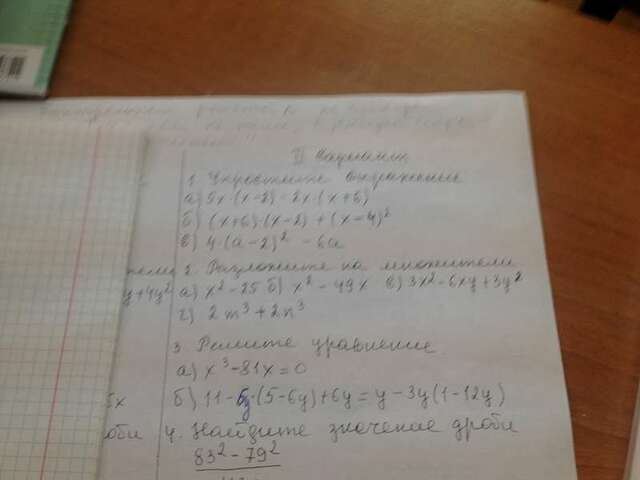 II Вариант
1. Упростите выражение
а) 5x·(x-2)-2x·(x+6)
б) (x+6)·(x-2)+(x-4)²
в) 4·(a-2)² - 6a
2. Разложите на множители
y+4y² а) x²-25 б) x²-49x в) 3x²-6xy+3y²
г) 2m³+2n³
3. Решите уравнение
а) x³-81x=0
5x б) 11-6y·(5-6y)+6y=y-3y(1-12y)
оби 4. Найдите значение дроби
83²-79²